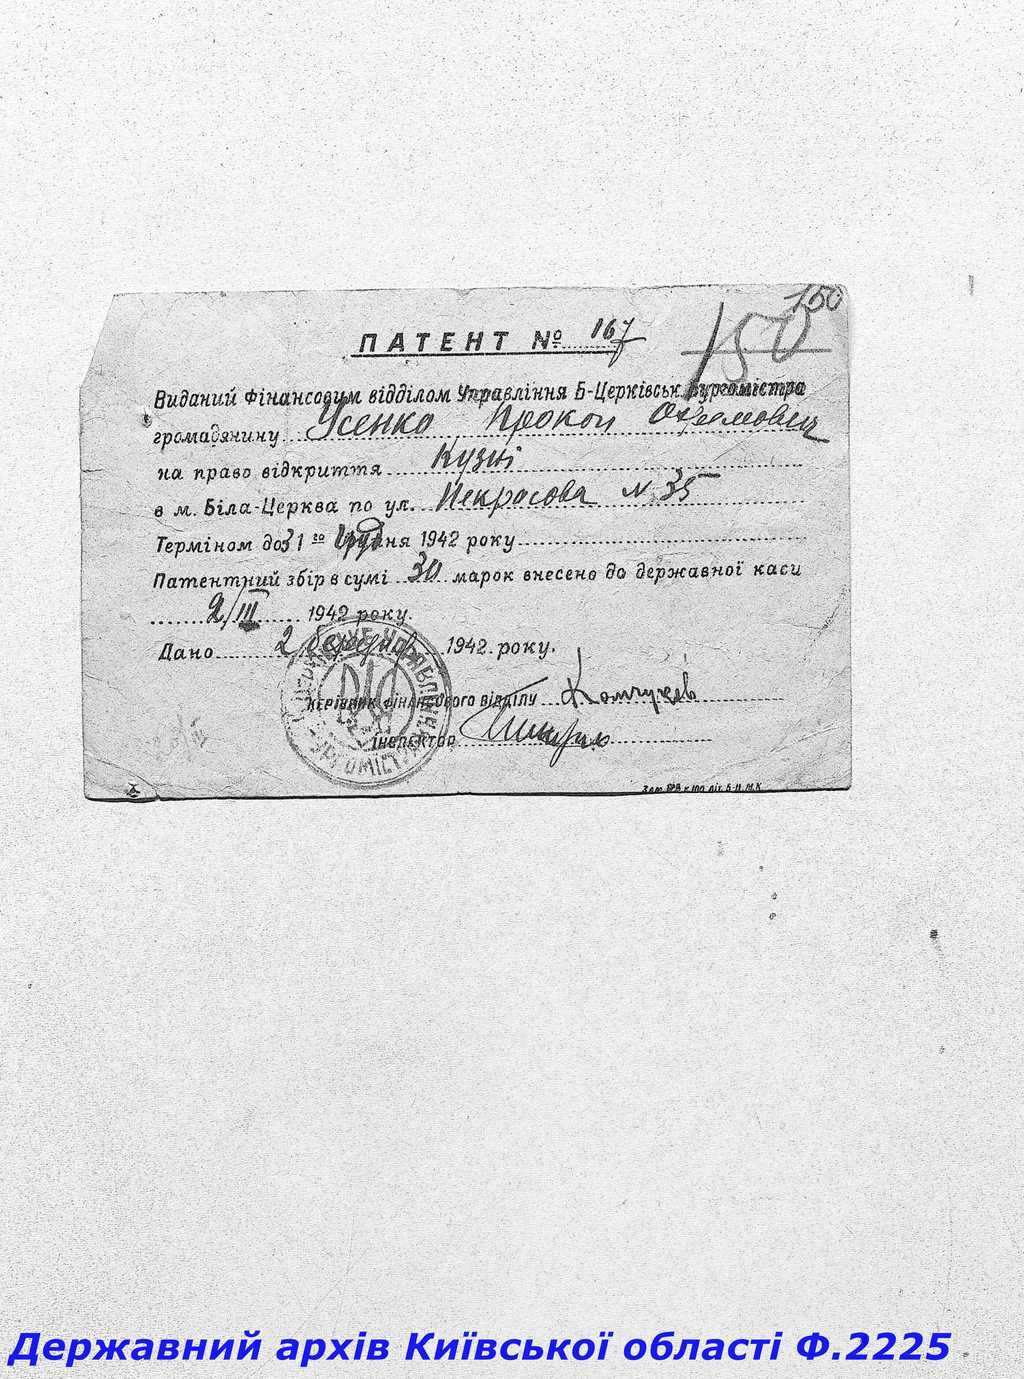 150
150
ПАТЕНТ № 167
Виданий Фінансовим відділом Управління Б-Церківськ. Бургомістра
громадянину Усенко Прокоп Охремович
на право відкриття Кузні
в м. Біла-Церква по ул. Некрасова № 35
Терміном до 31 го грудня 1942 року
Патентний збір в сумі 30 марок внесено до державної каси
2/III 1942 року.
Дано 2 березня 1942 року.
КЕРІВНИК ФІНАНСОВОГО ВІДДІЛУ
ІНСПЕКТОР
Державний архів Київської області Ф.2225